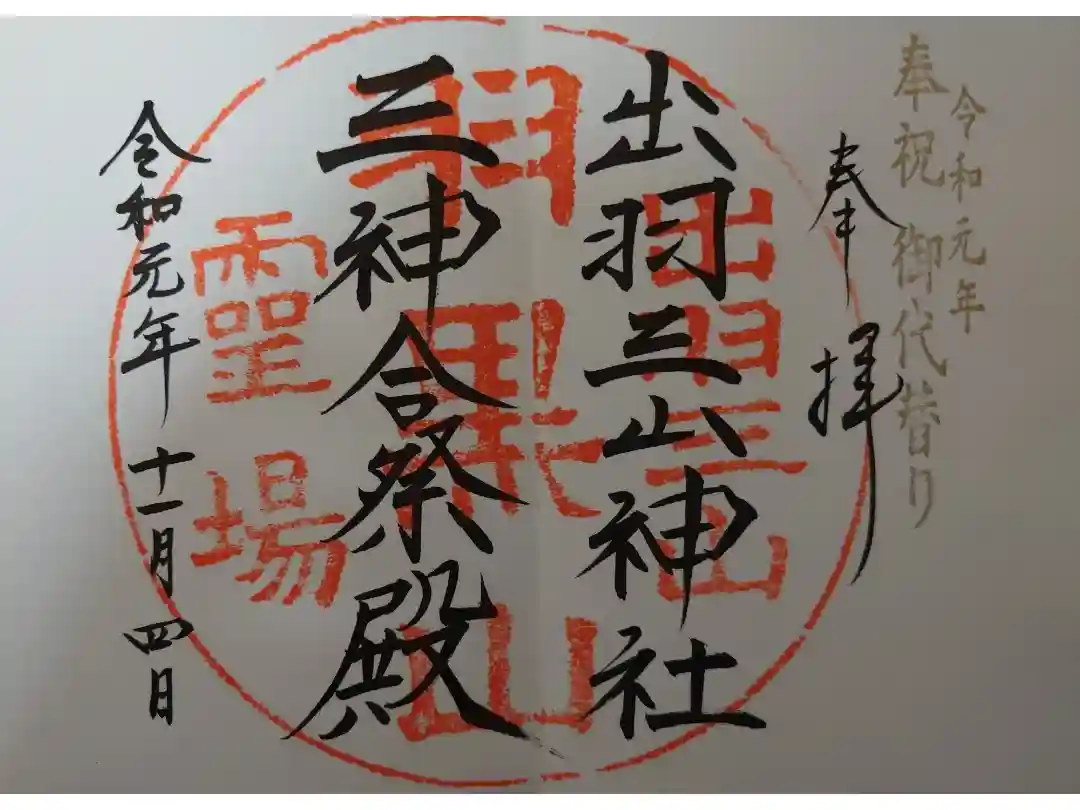 令和元年
奉祝 御代替り
奉拝
出羽三山神社
三神合祭殿
令和元年十一月四日
出羽三山
羽黒山
靈場